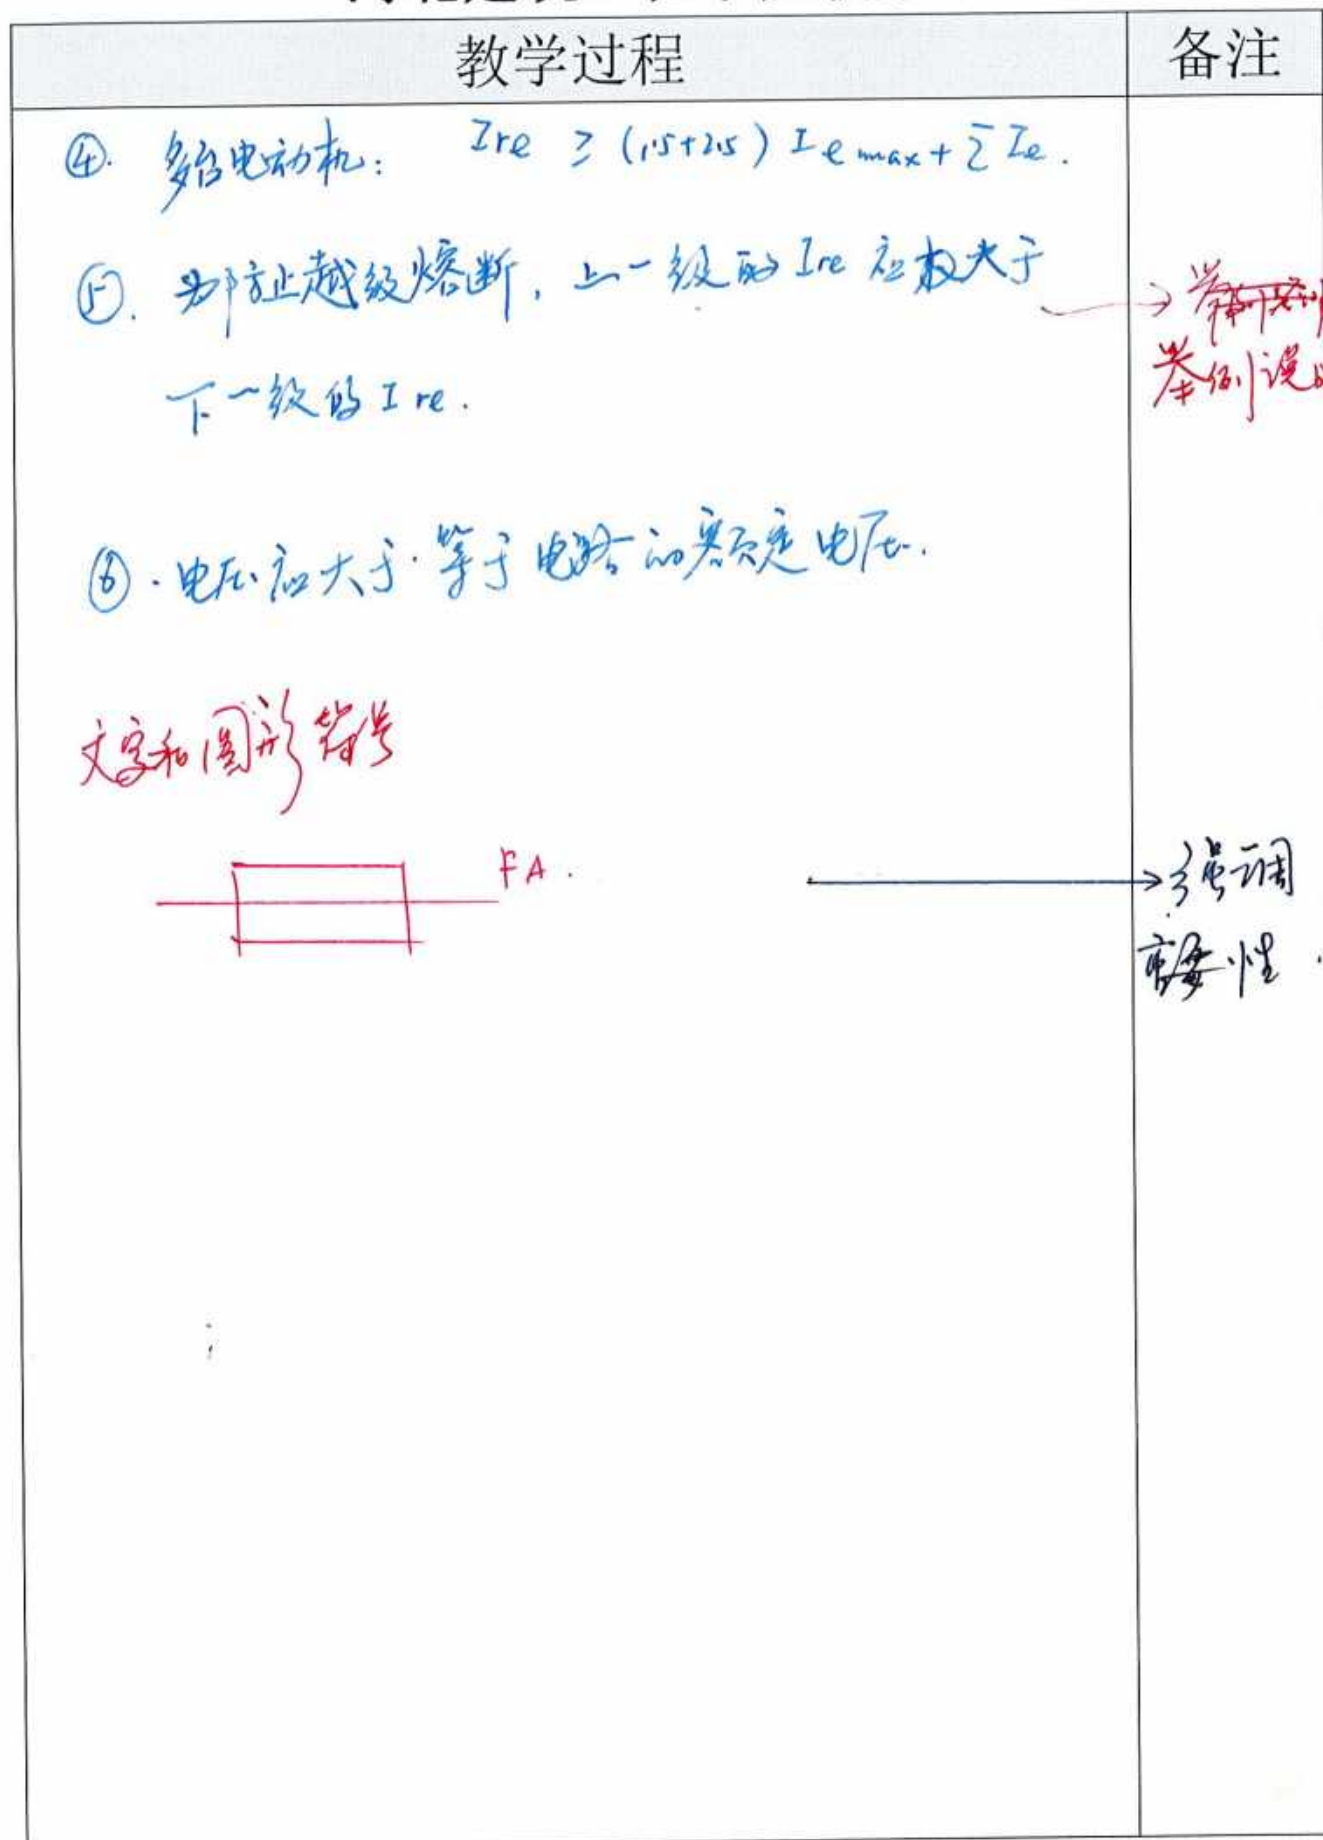 教学过程
备注
④. 多台电动机: Ire ≥ (1.5+2.5) Ie max + ΣIe.
⑤. 为防止越级熔断, 上一级的 Ire 应大于
下一级的 Ire.
→ 举例说
⑥. 电压应大于等于电路的额定电压.
文字和图形符号
FA.
→ 强调
重要性.